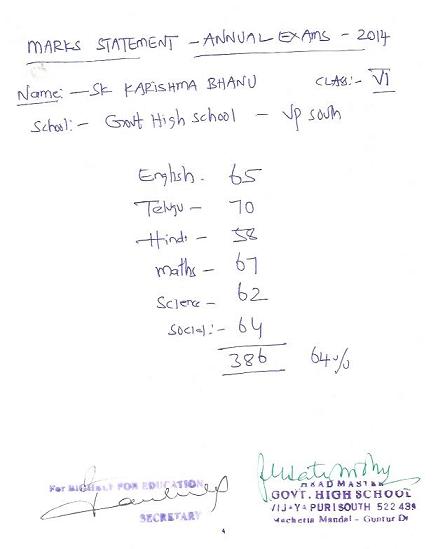 MARKS STATEMENT - ANNUAL EXAMS - 2014
Name: - SK KARISHMA BHANU CLASS:- VI
School:- Govt High school - VP South
English. 65
Telugu - 70
Hindi - 58
maths - 67
Science - 62
Social:- 64
386 64%
For RIGHT FOR EDUCATION
SECRETARY
HEAD MASTER
GOVT. HIGH SCHOOL
VIJAYA PURI SOUTH 522 439
Macherla Mandal - Guntur Dt
4